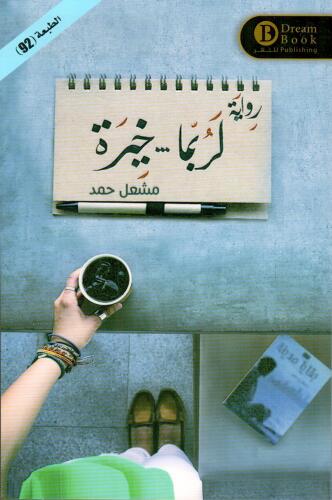 الطبعة (92)
Dream
Book
Publishing للنشر
رواية
لَرُبَّما ... خِيَرَة
مشعل حمد